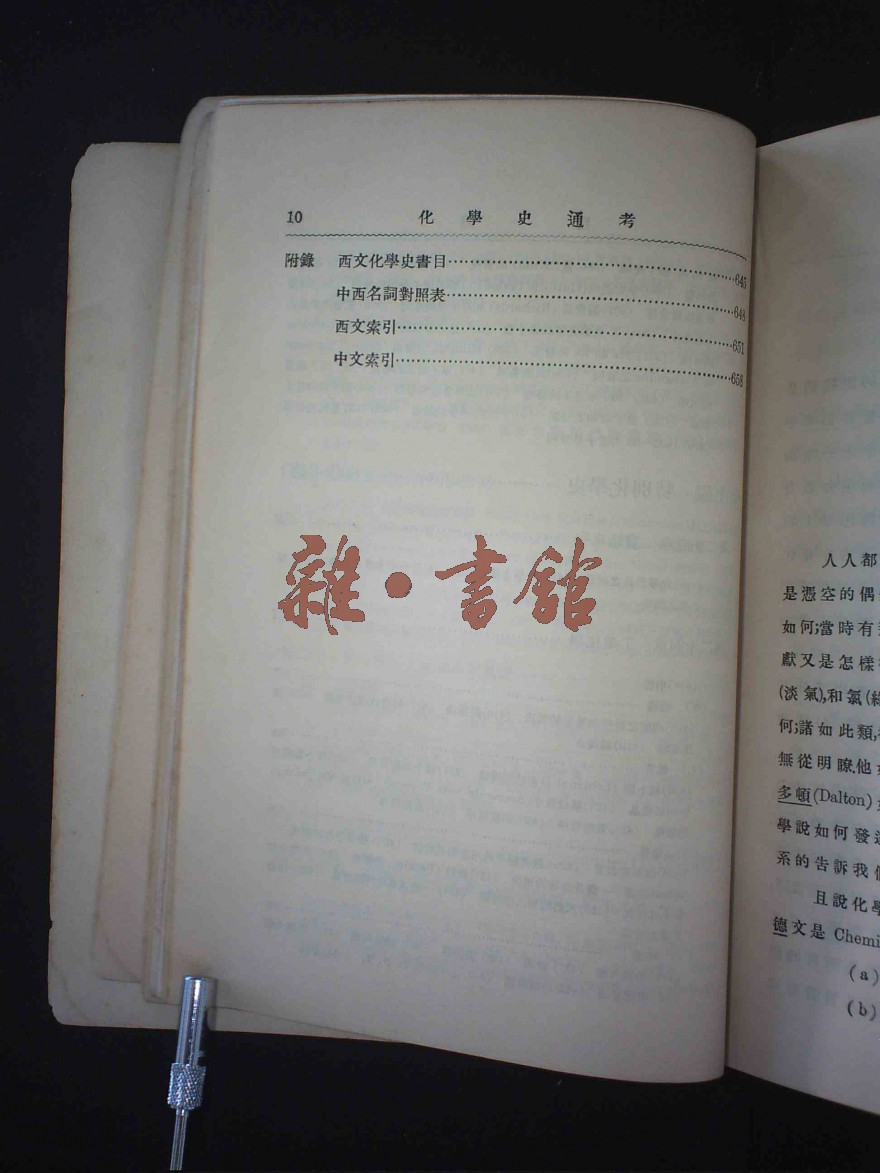 10 化學史通考
附錄 西文化學史書目……645
中西名詞對照表……648
西文索引……651
中文索引……658
雜·書館
人人都
是憑空的偶
如何;當時有
獻又是怎樣
(淡氣),和氯(綠
何;諸如此類,
無從明瞭.他
多頓(Dalton)
學說如何發達
系的告訴我們
且說化學
德文是 Chemi
(a)
(b)